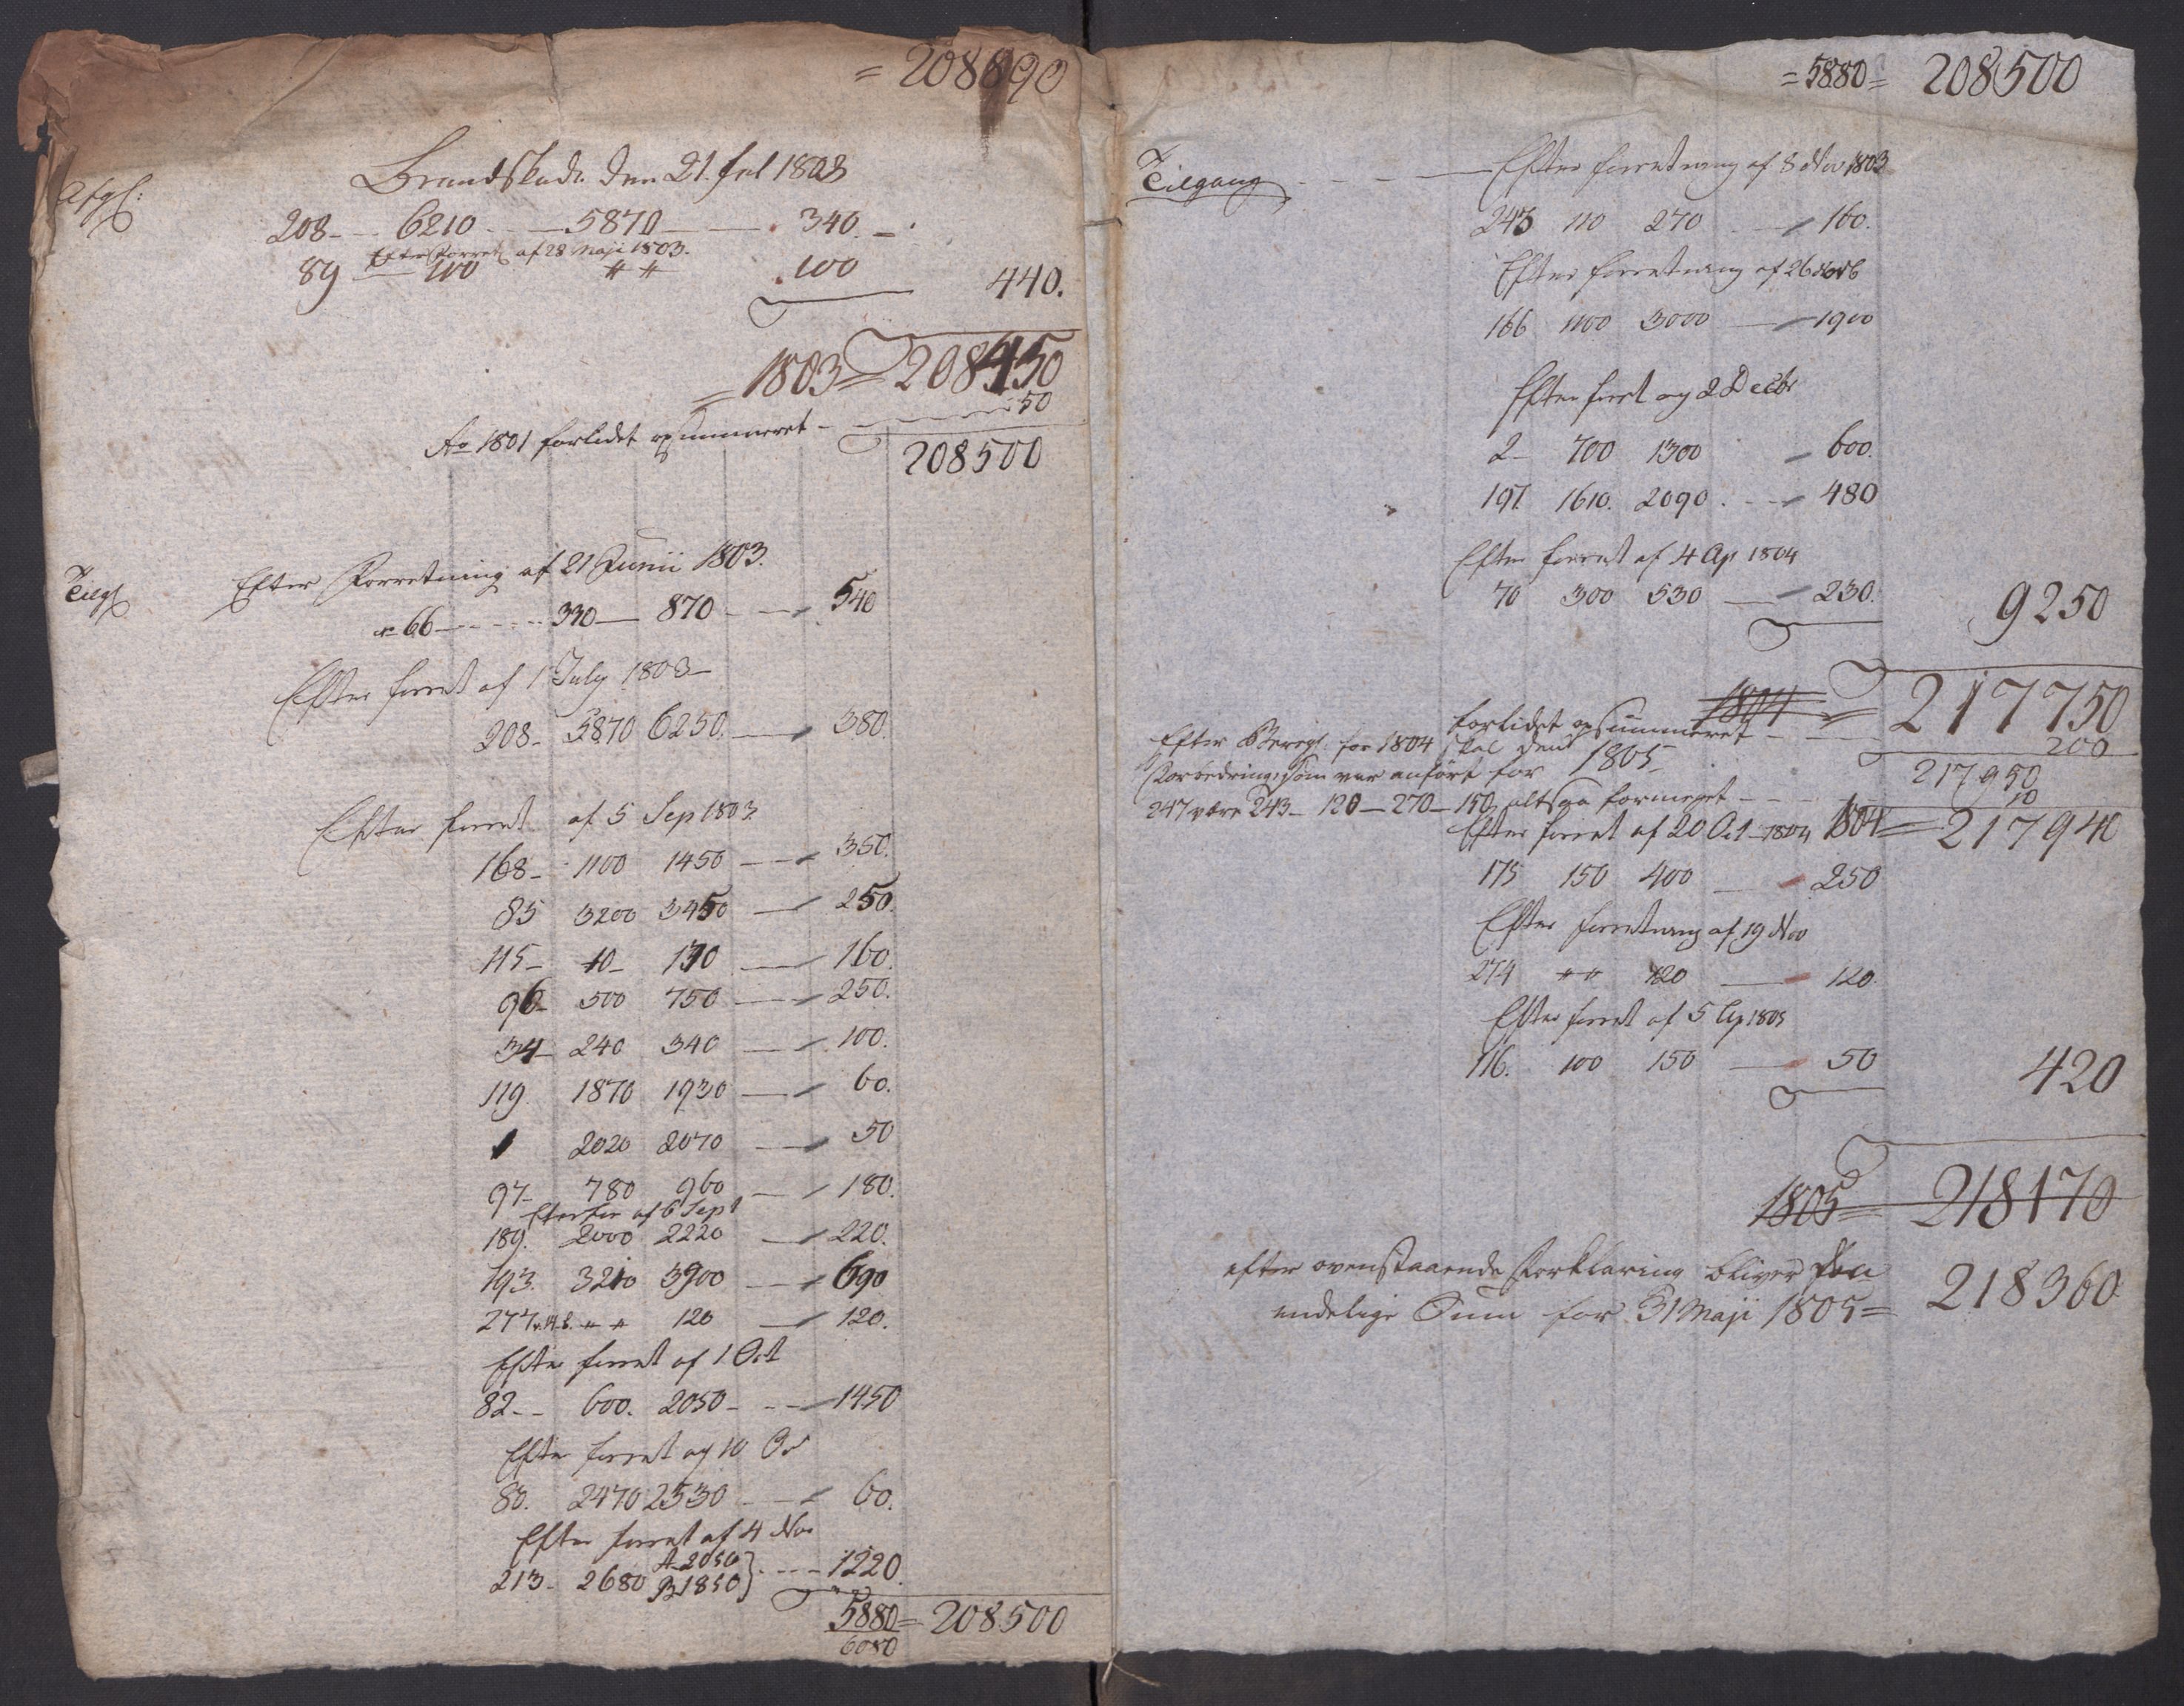 = 208890
Brandskade den 21. Jul 1803
Afg:
208 - 6210 - 5870 - 340 -
Efter Forretn af 28 Maji 1803.
89 - 100 " " 100
440.
= 1803 = 208450
Ao 1801 forlidet opsummeret - 50
208500
Tilg
Efter Forretning af 21 Junii 1803.
66 - 330 - 870 - 540
Efter forret af 1 July 1803 -
208 - 5870 6250. - 380.
Efter forret af 5 Sep 1803
168 - 1100 1450 - 350.
85 3200 3450 - 250.
115 - 10 - 170 - 160.
96 - 500 750 - 250.
34 - 240 340 - 100.
119. 1870 1930 - 60.
1 2020 2070 - 50
97 - 780 960 - 180.
Efter for af 6 Sept
189. 2000 2220 - 220.
193. 3210 3900 - 690
277 " " 120 - 120.
Efter forret af 1 Oct
82 - - 600. 2050 - - - 1450
Efter forret af 10 Oc
80. 2470 2530 - 60.
Efter forret af 4 Nov
213 - 2680 A 2050 B 1850 } - - - 1220.
5880 = 208500
6080
= 5880 = 208500
Tilgang - - - Efter forretning af 8 Nov 1803
243 110 270 - 160.
Efter forretning af 26 Novb
166 1100 3000 - 1900
Efter forret af 2 Decbr
2 - 700 1300 - 600.
197. 1610. 2090. - - 480
Efter forret af 4 Ap 1804
70 300 530 - 230.
9250
1804 = 217750
forlidet opsummeret - - - 200
217950
Efter Beregn: for 1804 skal den
Forbedring, som var anført for 1805
247 være 243 - 120 - 270 - 150, altsaa formeget - - - 10
1804 = 217940
Efter forret af 20 Oct - 1804
175 150 400 - 250
Efter forretning af 19 Nov
274 " " 120 - 120.
Efter forret af 5 Ap 1805
116. 100 150 - 50
420
1805 = 218170
efter ovenstaaende Forklaring bliver den
endelige Sum for 31 Maji 1805 = 218360